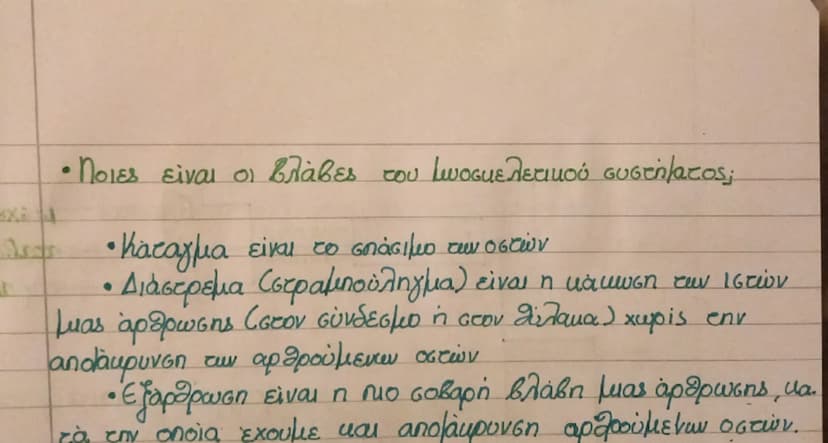 • Ποιες είναι οι βλάβες του μυοσκελετικού συστήματος;
• Κάταγμα είναι το σπάσιμο των οστών
• Διάστρεμα (στραμπούληγμα) είναι η κάκωση των ιστών
μιας άρθρωσης (στον σύνδεσμο ή στον θύλακα) χωρίς την
απομάκρυνση των αρθρούμενων οστών
• Εξάρθρωση είναι η πιο σοβαρή βλάβη μιας άρθρωσης, κα-
τά την οποία έχουμε και απομάκρυνση αρθρούμενων οστών.